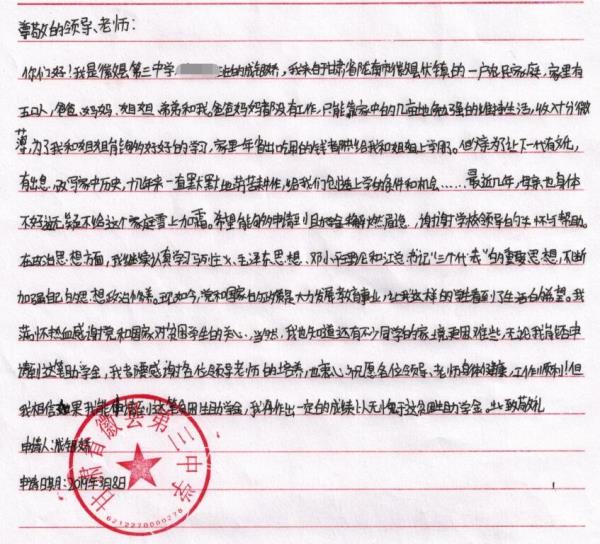 尊敬的领导、老师：
你们好！我是徽县第三中学 班的成银娇，我来自甘肃省陇南市徽县伏镇的一户农民家庭，家里有
五口人，爸爸、妈妈、姐姐、弟弟和我，爸爸妈妈都没有工作，只能靠家中的几亩地勉强的维持生活，收入十分微
薄，为了我和姐姐能够好好的学习，家里一年省出吃用的钱都供给我和姐姐上学用。但父亲为让下一代有文化，
有出息，改写家中历史，十几年来一直默默地劳苦耕作，给我们创造上学的条件和机会……最近几年，母亲也身体
不好 给这个家庭雪上加霜。希望能够申请到 解燃眉急，谢谢学校领导的关怀与帮助。
在政治思想方面，我继续认真学习马列主义、毛泽东思想、邓小平理论和江总书记"三个代表"的重要思想，不断
加强自己的思想政治修养。现如今，党和国家的政策是大力发展教育事业，让我这样的学生看到了生活的希望。我
满怀热血感谢党和国家对贫困学生的关心，当然，我也知道还有不少同学的家境更困难些，无论我能否申
请到这笔助学金，我都要感谢各位领导老师的培养，也衷心祝愿各位领导、老师身体健康，工作顺利！但
我相信如果我能申请到这笔贫困生助学金，我会作出一定的成绩，以无愧于这贫困生助学金。此致敬礼
申请人：成银娇
申请日期：2019年3月8日
甘肃省徽县第三中学
6212270000278